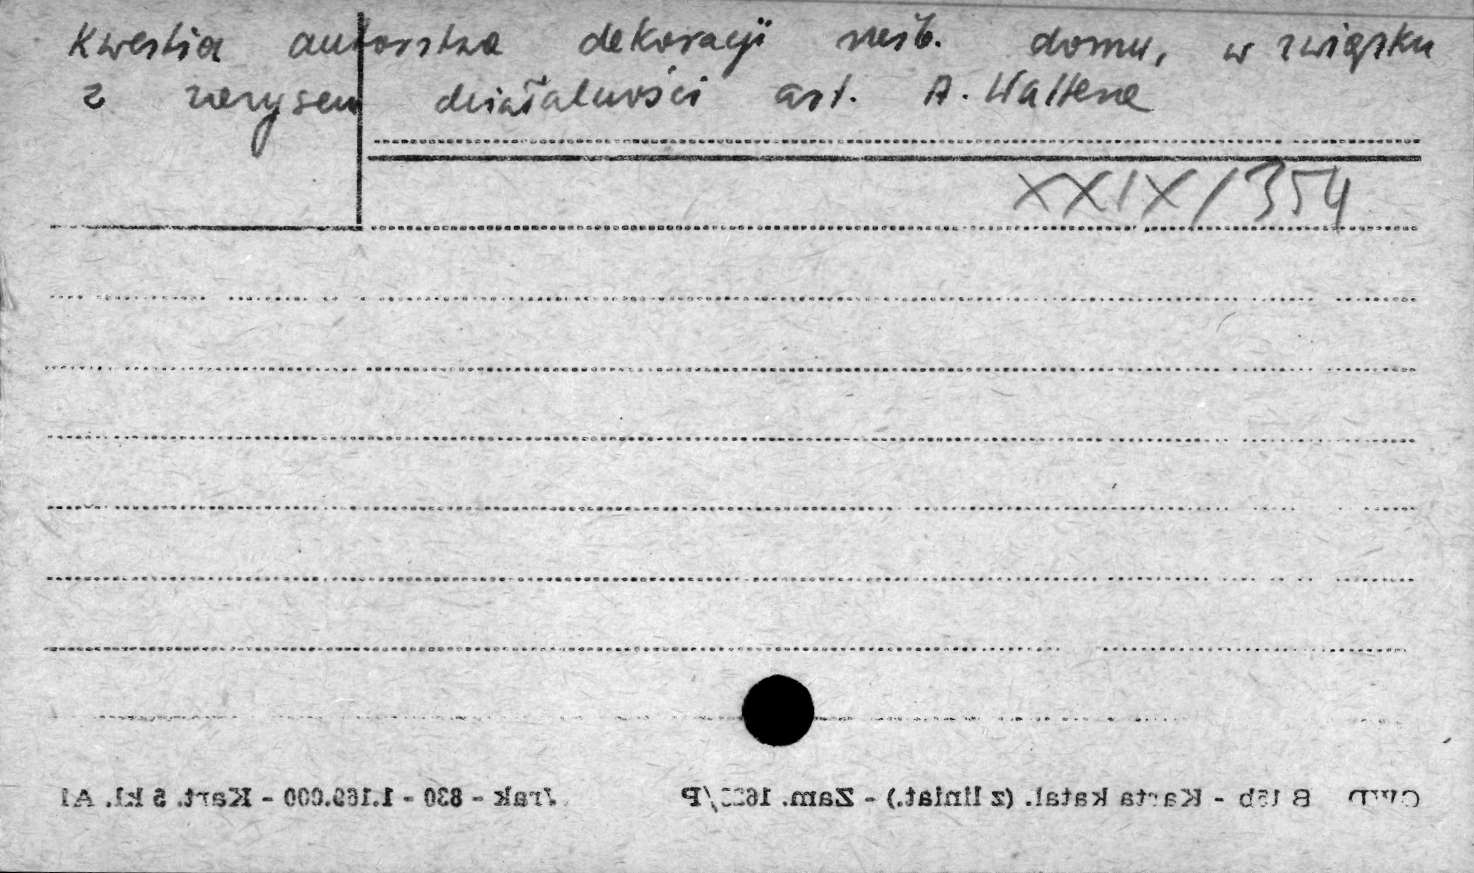 Kwestia autorstwa dekoracji rzeźb. domu, w związku
z zarysem działalności art. A. Wattena
XXIX/354
B 15b - Karta katal. (z liniat.) - Zam. /P
rak - 830 - 1.160.000 - Kart. 5 kl. A1